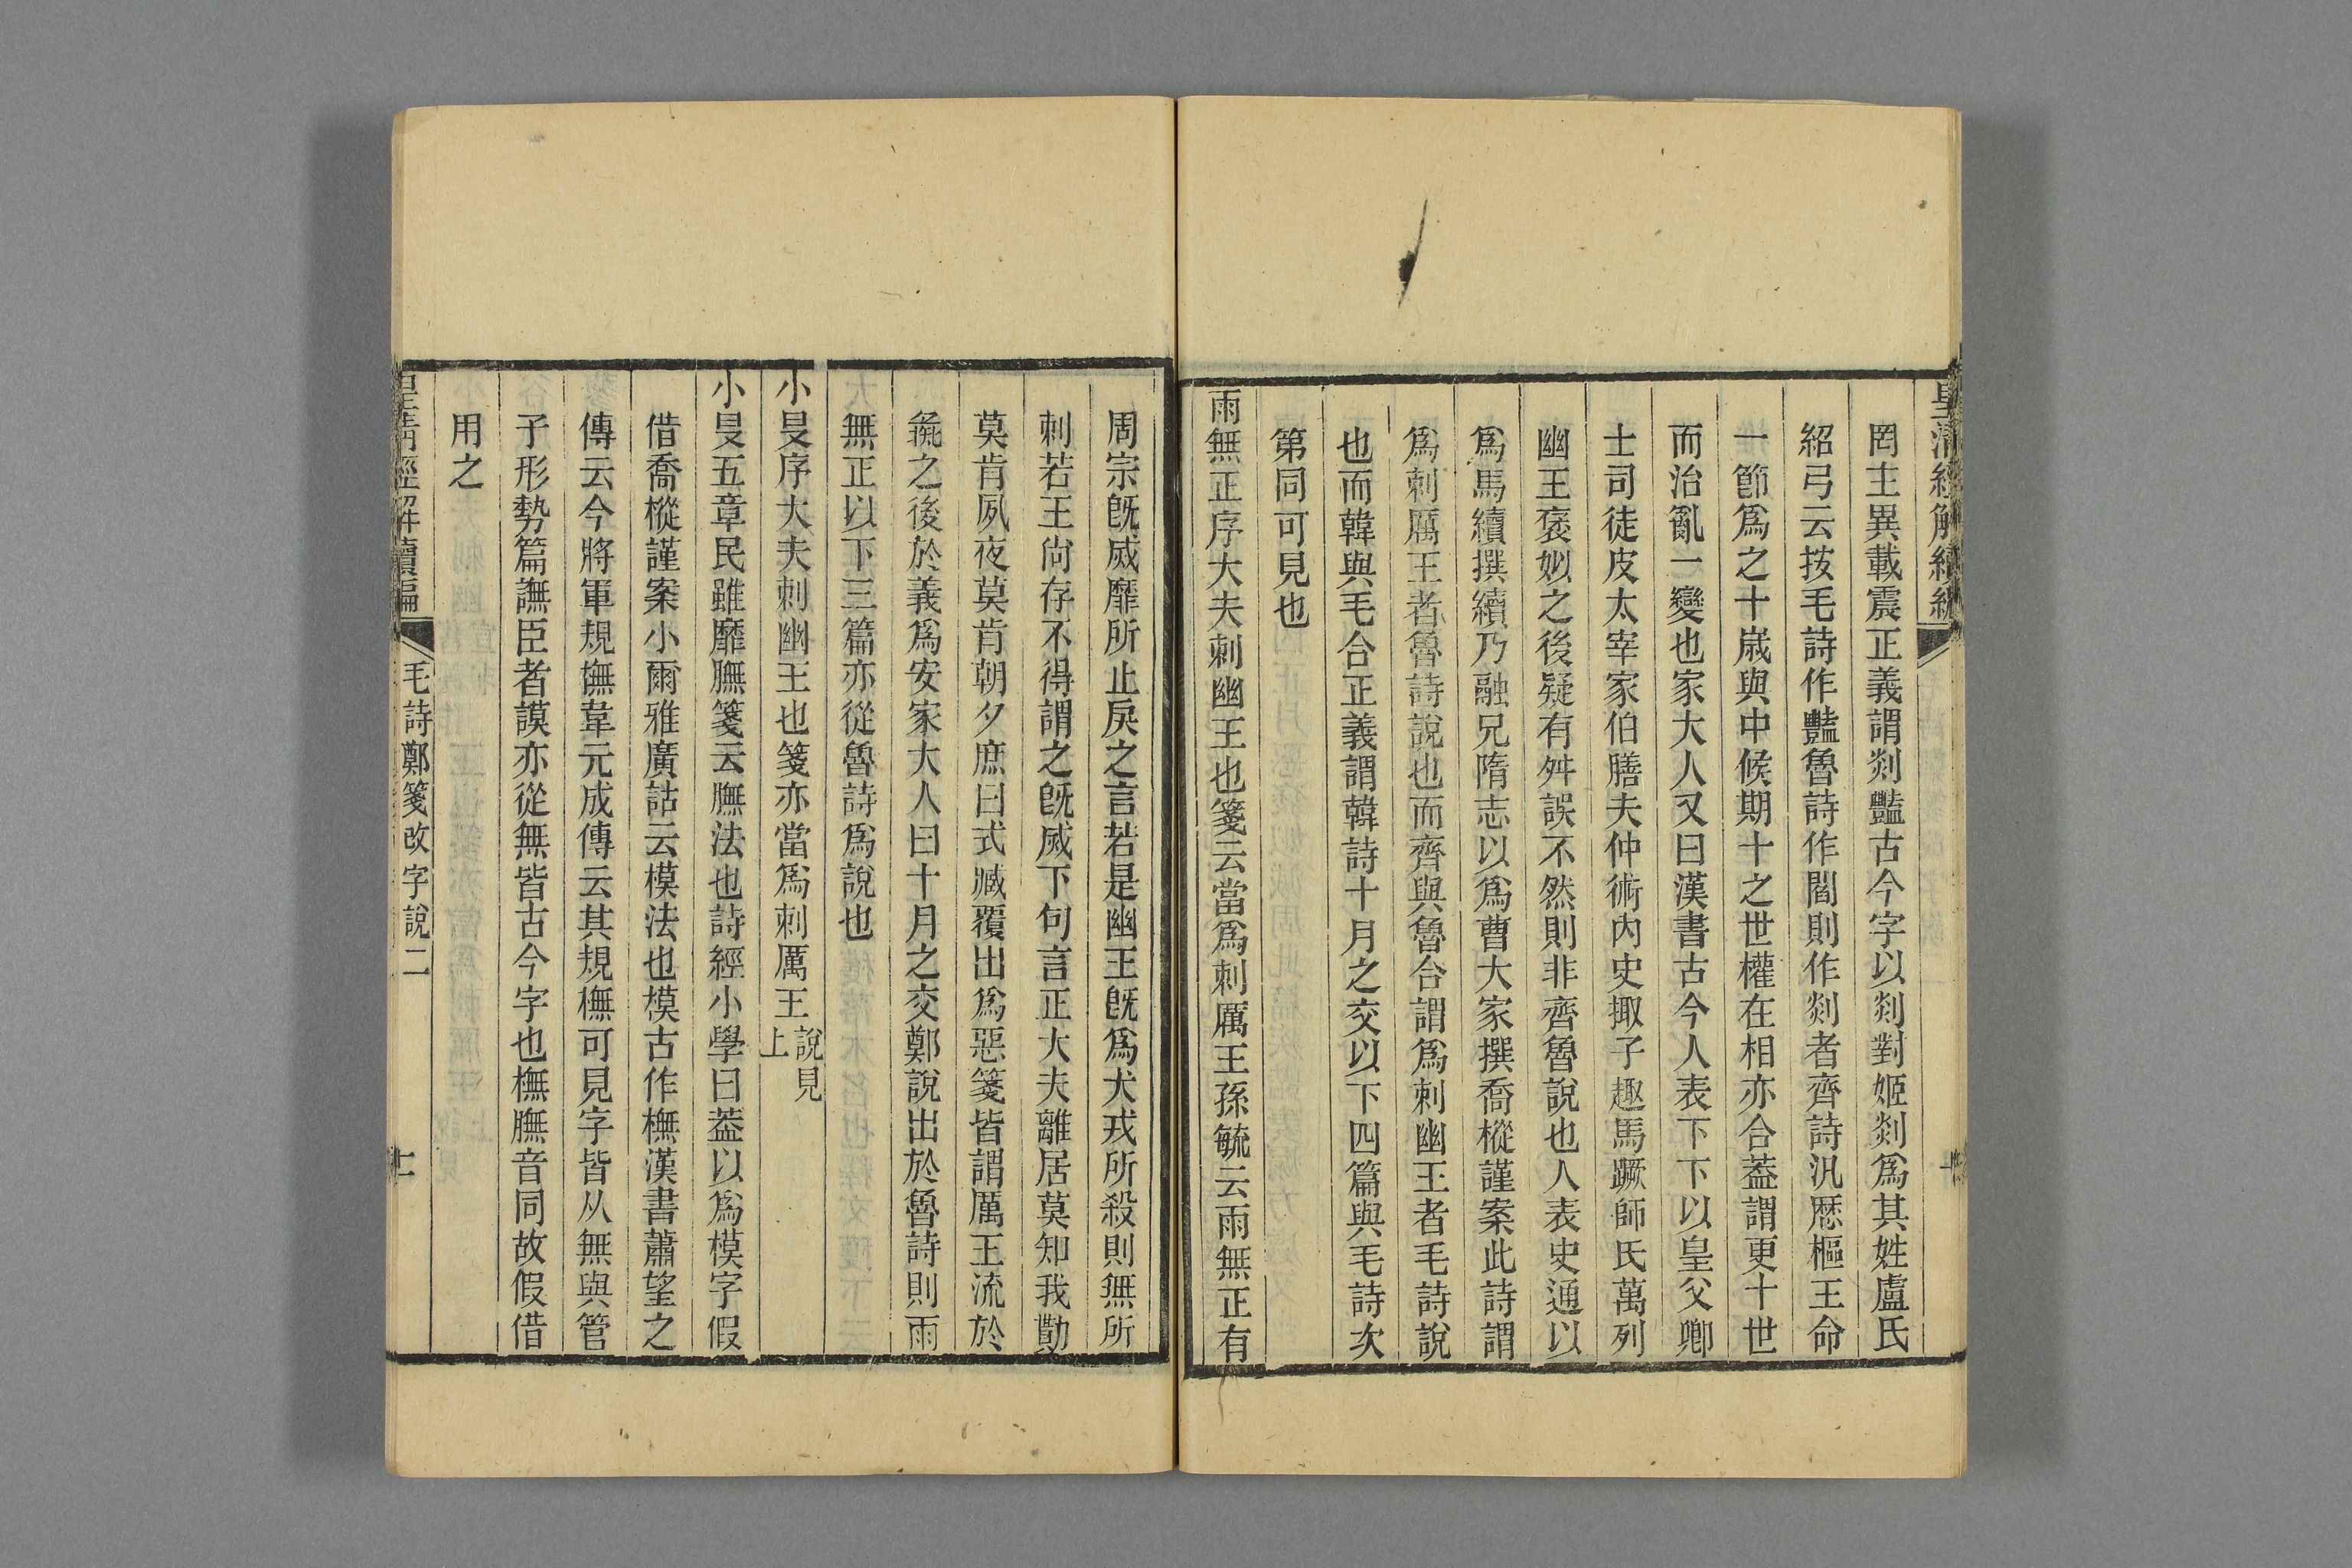 皇清經解續編
罔主異載震正義謂剡豔古今字以剡對姬剡爲其姓盧氏
紹弓云按毛詩作豔魯詩作閻則作剡者齊詩汎歷樞王命
一節爲之十歲與中候期十之世權在相亦合葢謂更十世
而治亂一變也家大人又曰漢書古今人表下下以皇父卿
士司徒皮太宰家伯膳夫仲術內史掫子趣馬蹶師氏萬列
幽王褒姒之後疑有舛誤不然則非齊魯說也人表史通以
爲馬續撰續乃融兄隋志以爲曹大家撰喬樅謹案此詩謂
爲刺厲王者魯詩說也而齊與魯合謂爲刺幽王者毛詩說
也而韓與毛合正義謂韓詩十月之交以下四篇與毛詩次
第同可見也
雨無正序大夫刺幽王也箋云當爲刺厲王孫毓云雨無正有
周宗旣烕靡所止戾之言若是幽王旣爲犬戎所殺則無所
刺若王尙存不得謂之旣烕下句言正大夫離居莫知我勩
莫肯夙夜莫肯朝夕庶曰式臧覆出爲惡箋皆謂厲王流於
彘之後於義爲安家大人曰十月之交鄭說出於魯詩則雨
無正以下三篇亦從魯詩爲說也
小旻序大夫刺幽王也箋亦當爲刺厲王說見上
小旻五章民雖靡膴箋云膴法也詩經小學曰葢以爲模字假
借喬樅謹案小爾雅廣詁云模法也模古作橅漢書蕭望之
傳云今將軍規橅韋元成傳云其規橅可見字皆从無與管
子形勢篇譕臣者謨亦從無皆古今字也橅膴音同故假借
用之
皇淸經解續編
毛詩鄭箋改字說二